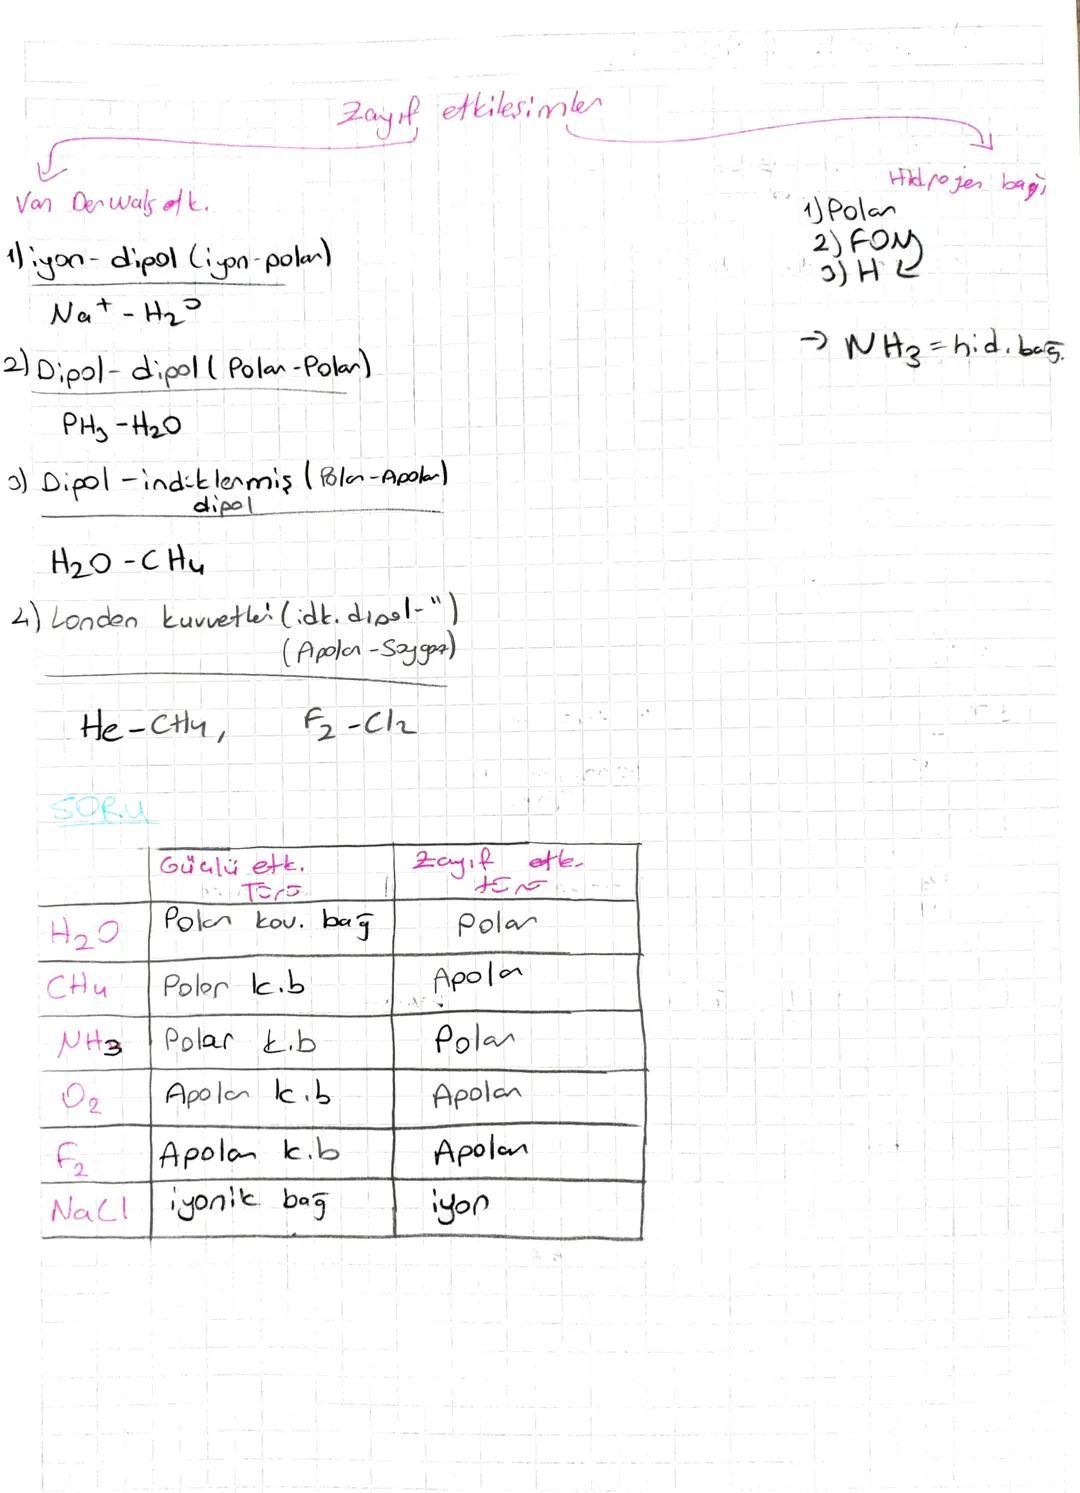 Zayıf etkilesimler
Van Der wals etk.
1) iyon - dipol (iyon-polar)
Na+ - H2O
2) Dipol - dipol ( Polar - Polar)
PH3 - H2O
3) Dipol - indüklenmiş ( Polar - Apolar)
dipol
H2O - CH4
4) Londen kuvvetleri (idk. dipol - ")
(Apolar - Soygaz)
He - CH4, F2 - Cl2
Hidrojen bağı
1) Polar
2) FON
3) H
→ NH3 = hid. bağ.
SORU
Güçlü etk. Zayıf etk.
Türü türü
H2O Polar kov. bağ Polar
CH4 Polar k.b Apolar
NH3 Polar k.b Polar
O2 Apolar k.b Apolar
F2 Apolar k.b Apolar
NaCl iyonik bağ iyon